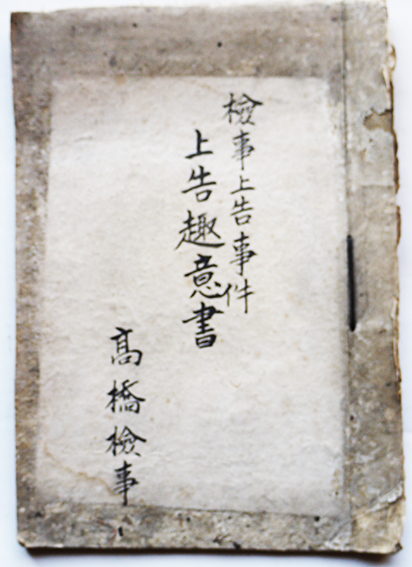 檢事上告事件
上告趣意書
高橋檢事